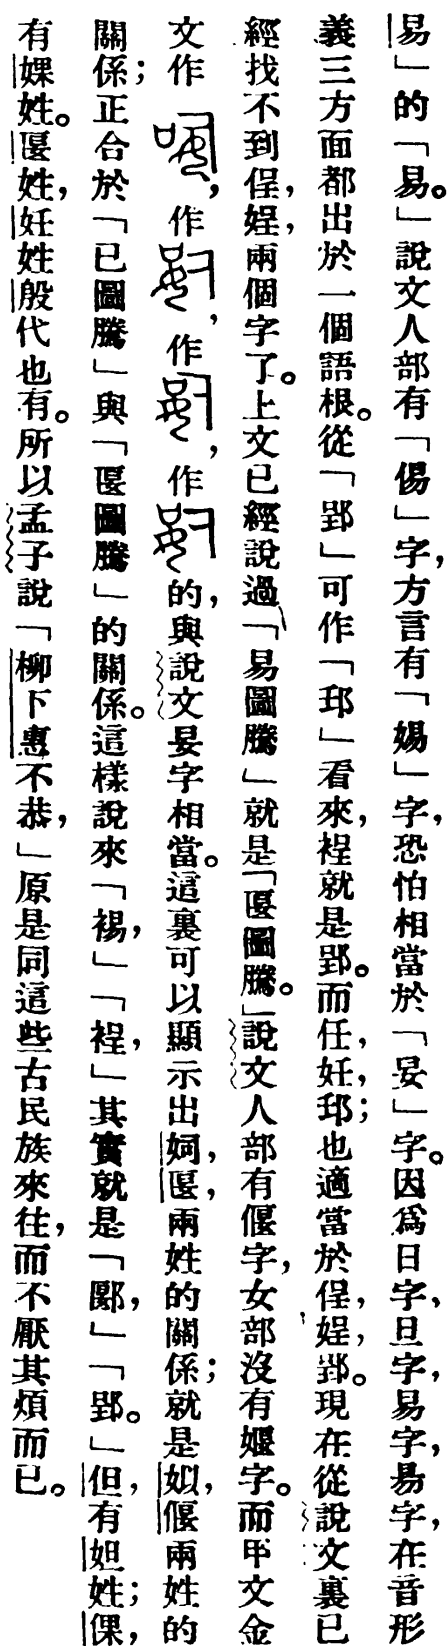 易」的「易。」說文人部有「偒」字，方言有「婸」字，恐怕相當於「妟」字。因爲日字，旦字，易字，昜字，在音形
義三方面都出於一個語根。從「郢」可作「邼」看來，裎就是郢。而任，妊，邼；也適當於侱，娗，郢。現在從說文裏已
經找不到侱，娗，兩個字了。上文已經說過「易圖騰」就是「匽圖騰。」說文人部有偃字，女部沒有嫗字。而甲文金
文作，作，作，作的，與說文妟字相當。這裏可以顯示出姛，匽，兩姓的關係；就是姒，偃兩姓的
關係；正合於「已圖騰」與「匽圖騰」的關係。這樣說來「裼，」「裎，」其實就是「郾，」「郢。」但，有妲姓；倮，
有婐姓。匽姓，妊姓殷代也有。所以孟子說「柳下惠不恭，」原是同這些古民族來往，而不厭其煩而已。